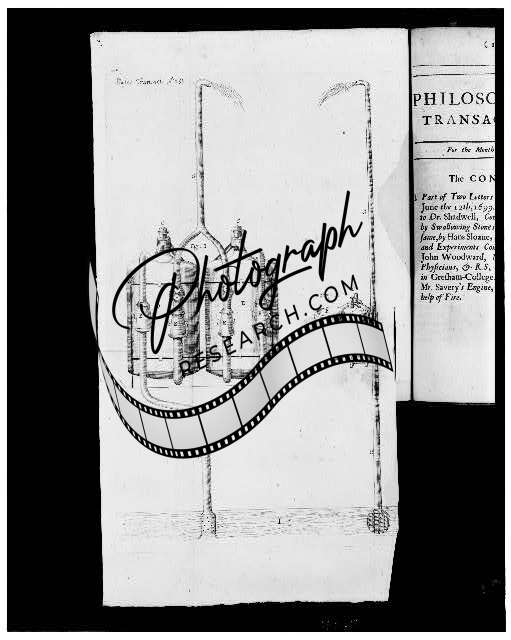 PHILOSO
TRANSAC
For the Month
The CON
Part of Two Letters
June the 12th, 1699.
to Dr. Shadwell, Con
by Swallowing Stones
same, by Hans Sloane,
and Experiments Con
John Woodward, M
Physicians, & R. S.
in Gresham-College.
Mr. Savery's Engine,
help of Fire.
Photograph
RESEARCH.COM